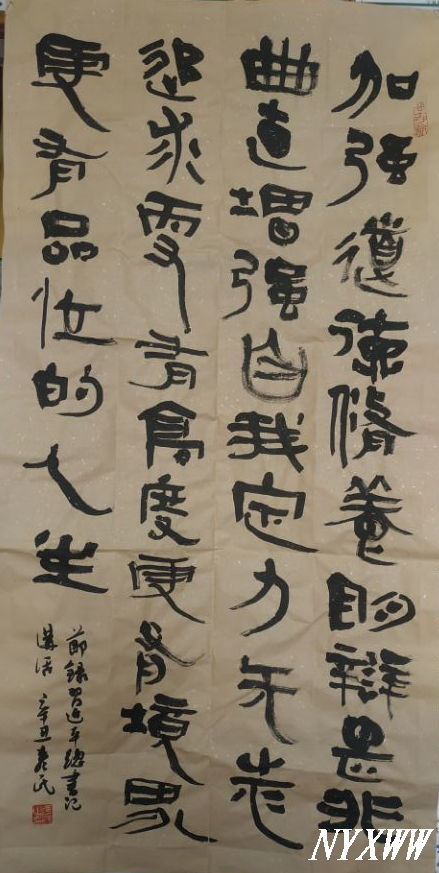 加强道德脩養明辨是非
曲直增强自我定力矢志
追求更有高度更有境界
更有品位的人生
節録習近平總書记
講话 辛丑
NYXWW